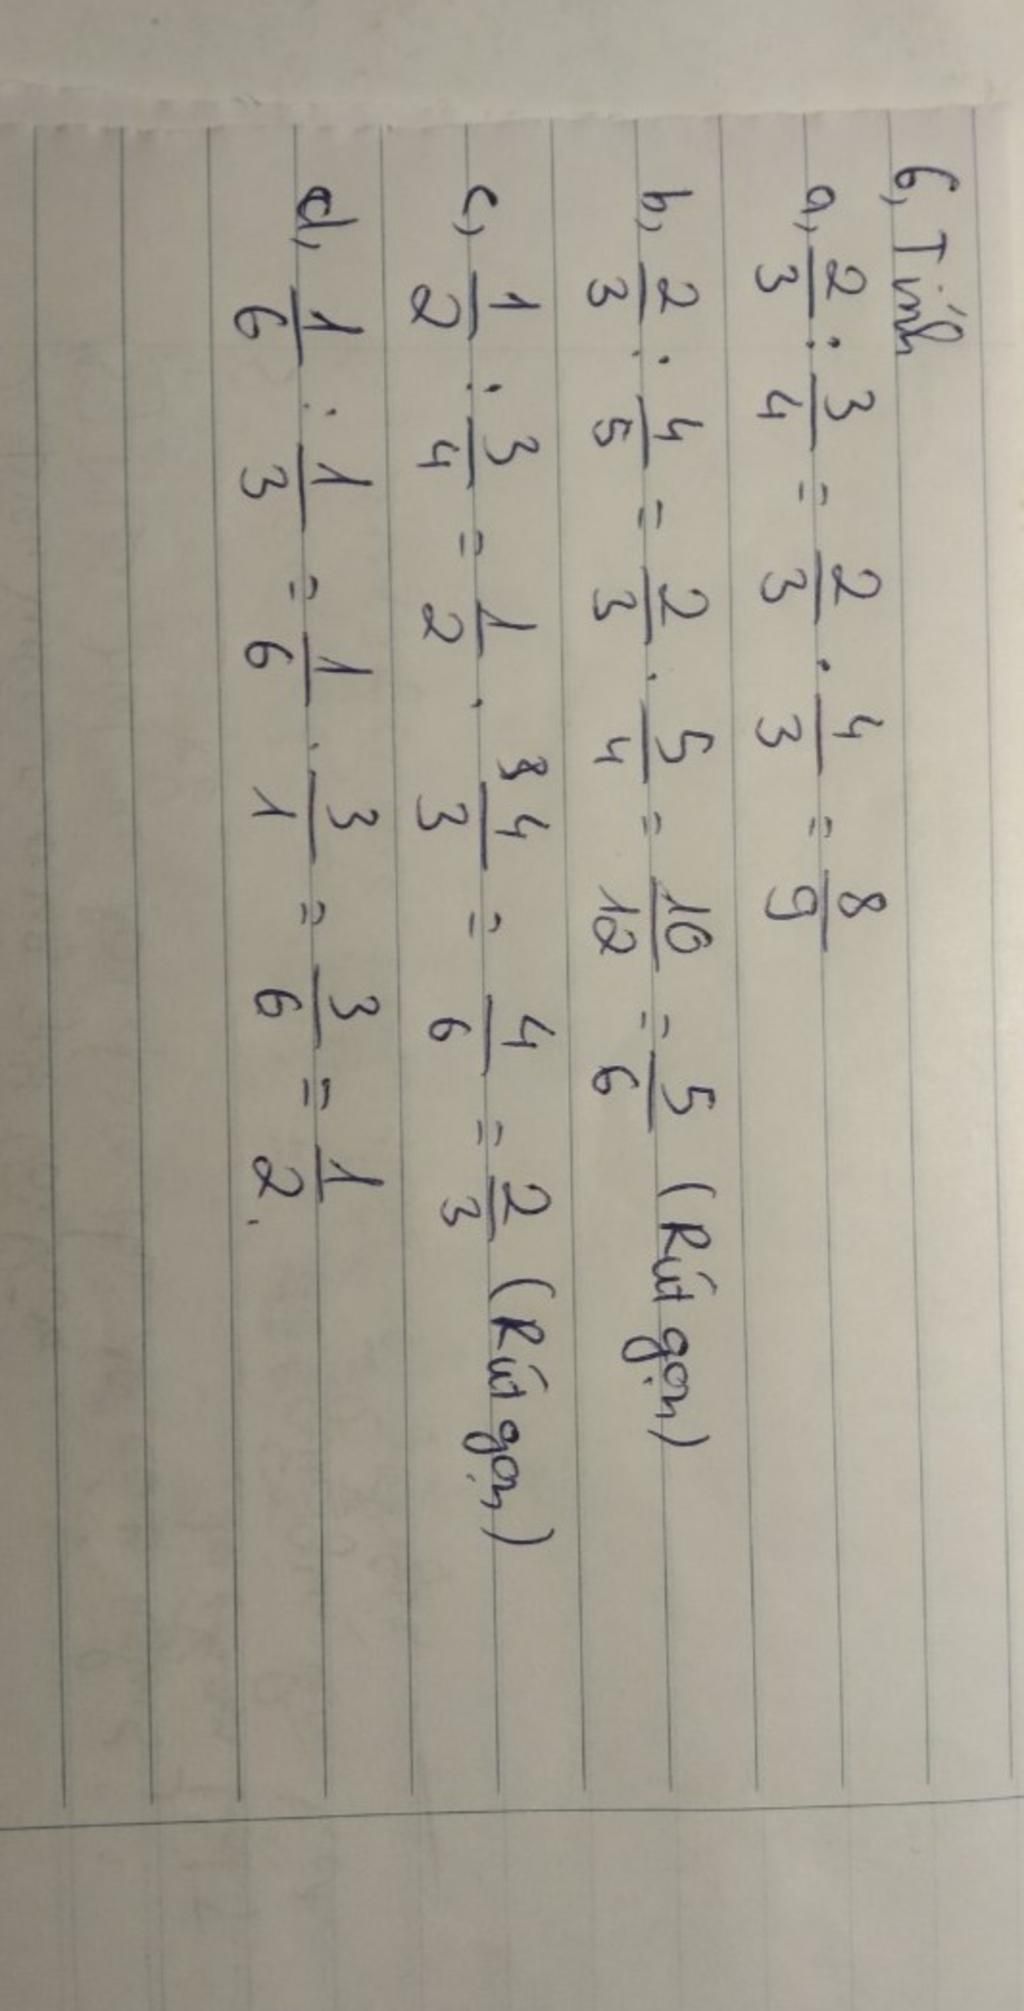 6, Tính
a, 2/3 : 3/4 = 2/3 . 4/3 = 8/9
b, 2/3 : 4/5 = 2/3 . 5/4 = 10/12 = 5/6 (Rút gọn)
c, 1/2 : 3/4 = 1/2 . 4/3 = 4/6 = 2/3 (Rút gọn)
d, 1/6 : 1/3 = 1/6 . 3/1 = 3/6 = 1/2.